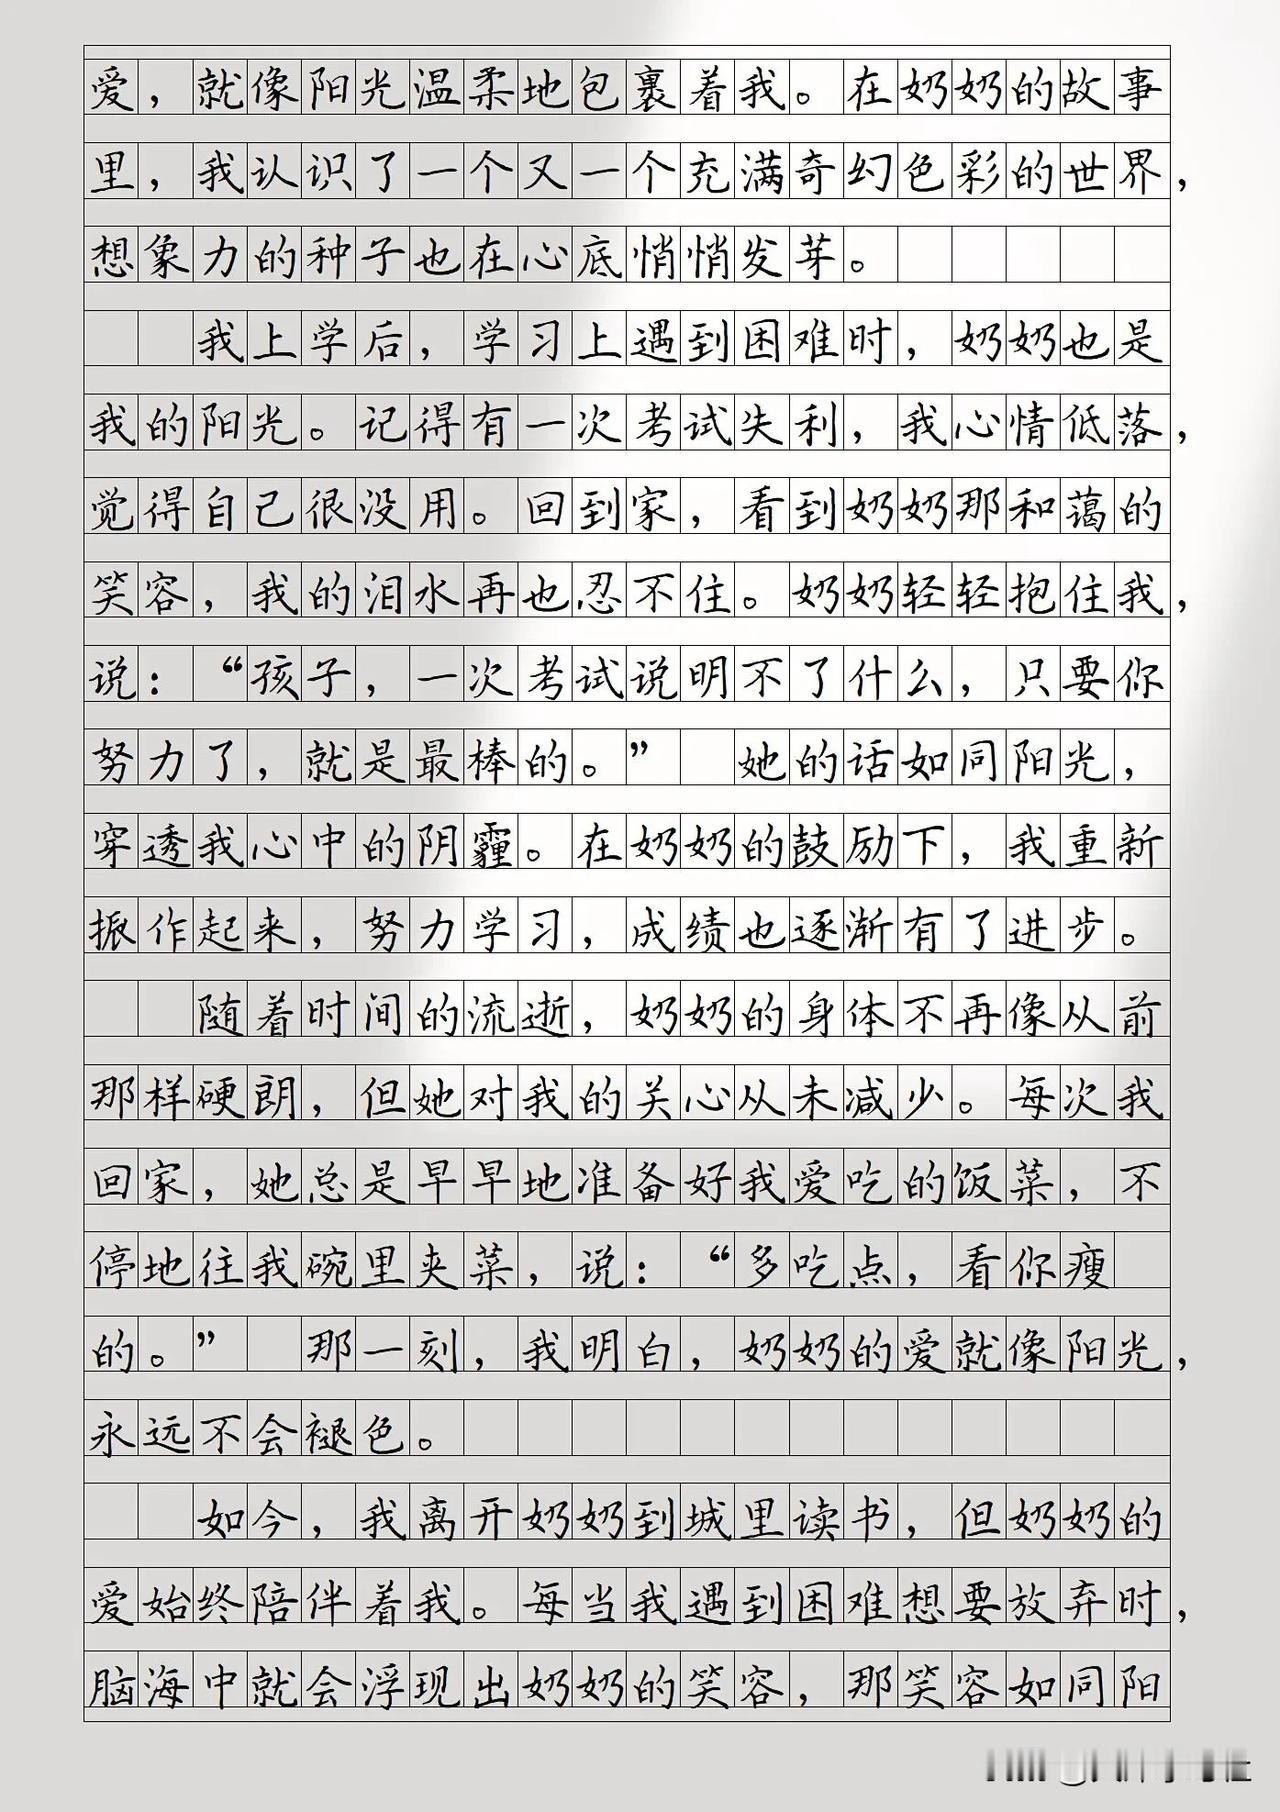 爱，就像阳光温柔地包裹着我。在奶奶的故事
里，我认识了一个又一个充满奇幻色彩的世界，
想象力的种子也在心底悄悄发芽。
我上学后，学习上遇到困难时，奶奶也是
我的阳光。记得有一次考试失利，我心情低落，
觉得自己很没用。回到家，看到奶奶那和蔼的
笑容，我的泪水再也忍不住。奶奶轻轻抱住我，
说：“孩子，一次考试说明不了什么，只要你
努力了，就是最棒的。” 她的话如同阳光，
穿透我心中的阴霾。在奶奶的鼓励下，我重新
振作起来，努力学习，成绩也逐渐有了进步。
随着时间的流逝，奶奶的身体不再像从前
那样硬朗，但她对我的关心从未减少。每次我
回家，她总是早早地准备好我爱吃的饭菜，不
停地往我碗里夹菜，说：“多吃点，看你瘦
的。” 那一刻，我明白，奶奶的爱就像阳光，
永远不会褪色。
如今，我离开奶奶到城里读书，但奶奶的
爱始终陪伴着我。每当我遇到困难想要放弃时，
脑海中就会浮现出奶奶的笑容，那笑容如同阳